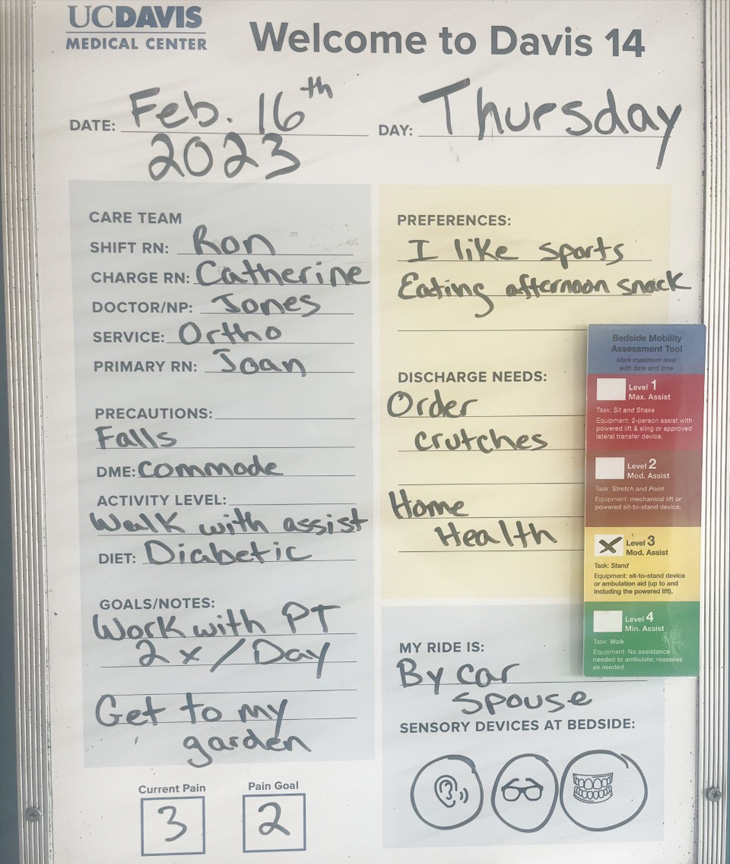 UCDAVIS
MEDICAL CENTER
Welcome to Davis 14
DATE: Feb. 16th
2023
DAY: Thursday
CARE TEAM
SHIFT RN: Ron
CHARGE RN: Catherine
DOCTOR/NP: Jones
SERVICE: Ortho
PRIMARY RN: Joan
PRECAUTIONS:
Falls
DME: commode
ACTIVITY LEVEL:
Walk with assist
DIET: Diabetic
GOALS/NOTES:
Work with PT
2x/Day
Get to my
garden
Current Pain
3
Pain Goal
2
PREFERENCES:
I like sports
Eating afternoon snack
DISCHARGE NEEDS:
Order
crutches
Home
Health
Bedside Mobility
Assessment Tool
Mark maximum level
with date and time
Level 1
Max. Assist
Task: Sit and Shake
Equipment: 2-person assist with
powered lift & sling or approved
lateral transfer device.
Level 2
Mod. Assist
Task: Stretch and Point
Equipment: mechanical lift or
powered sit-to-stand device.
X Level 3
Mod. Assist
Task: Stand
Equipment: sit-to-stand device
or ambulation aid (up to and
including the powered lift).
Level 4
Min. Assist
Task: Walk
Equipment: No assistance
needed to ambulate; reassess
as needed.
MY RIDE IS:
By car
spouse
SENSORY DEVICES AT BEDSIDE: